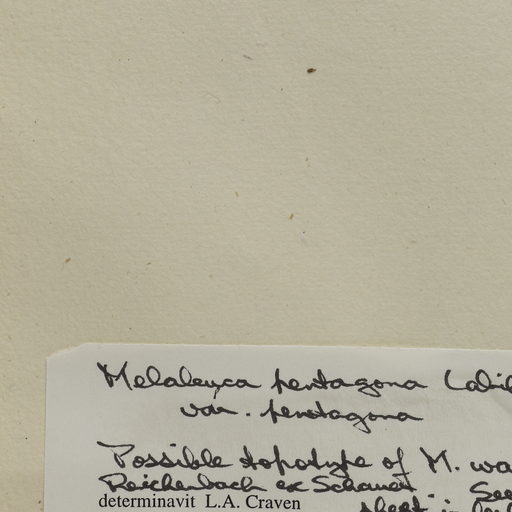 Melaleuca pentagona Labil
var. pentagona
Possible topotype of M. wa
Reichenbach ex Schauer. See
determinavit L.A. Craven
sheet in